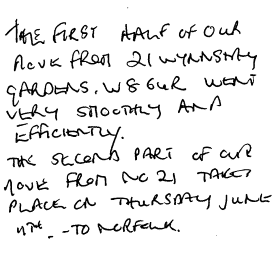 THE FIRST HALF OF OUR
MOVE FROM 21 WYNNSTAY
GARDENS, W8 6UR WENT
VERY SMOOTHLY AND
EFFICIENTLY.
THE SECOND PART OF OUR
MOVE FROM NO 21 TAKES
PLACE ON THURSDAY JUNE
4TH. - TO NORFOLK.